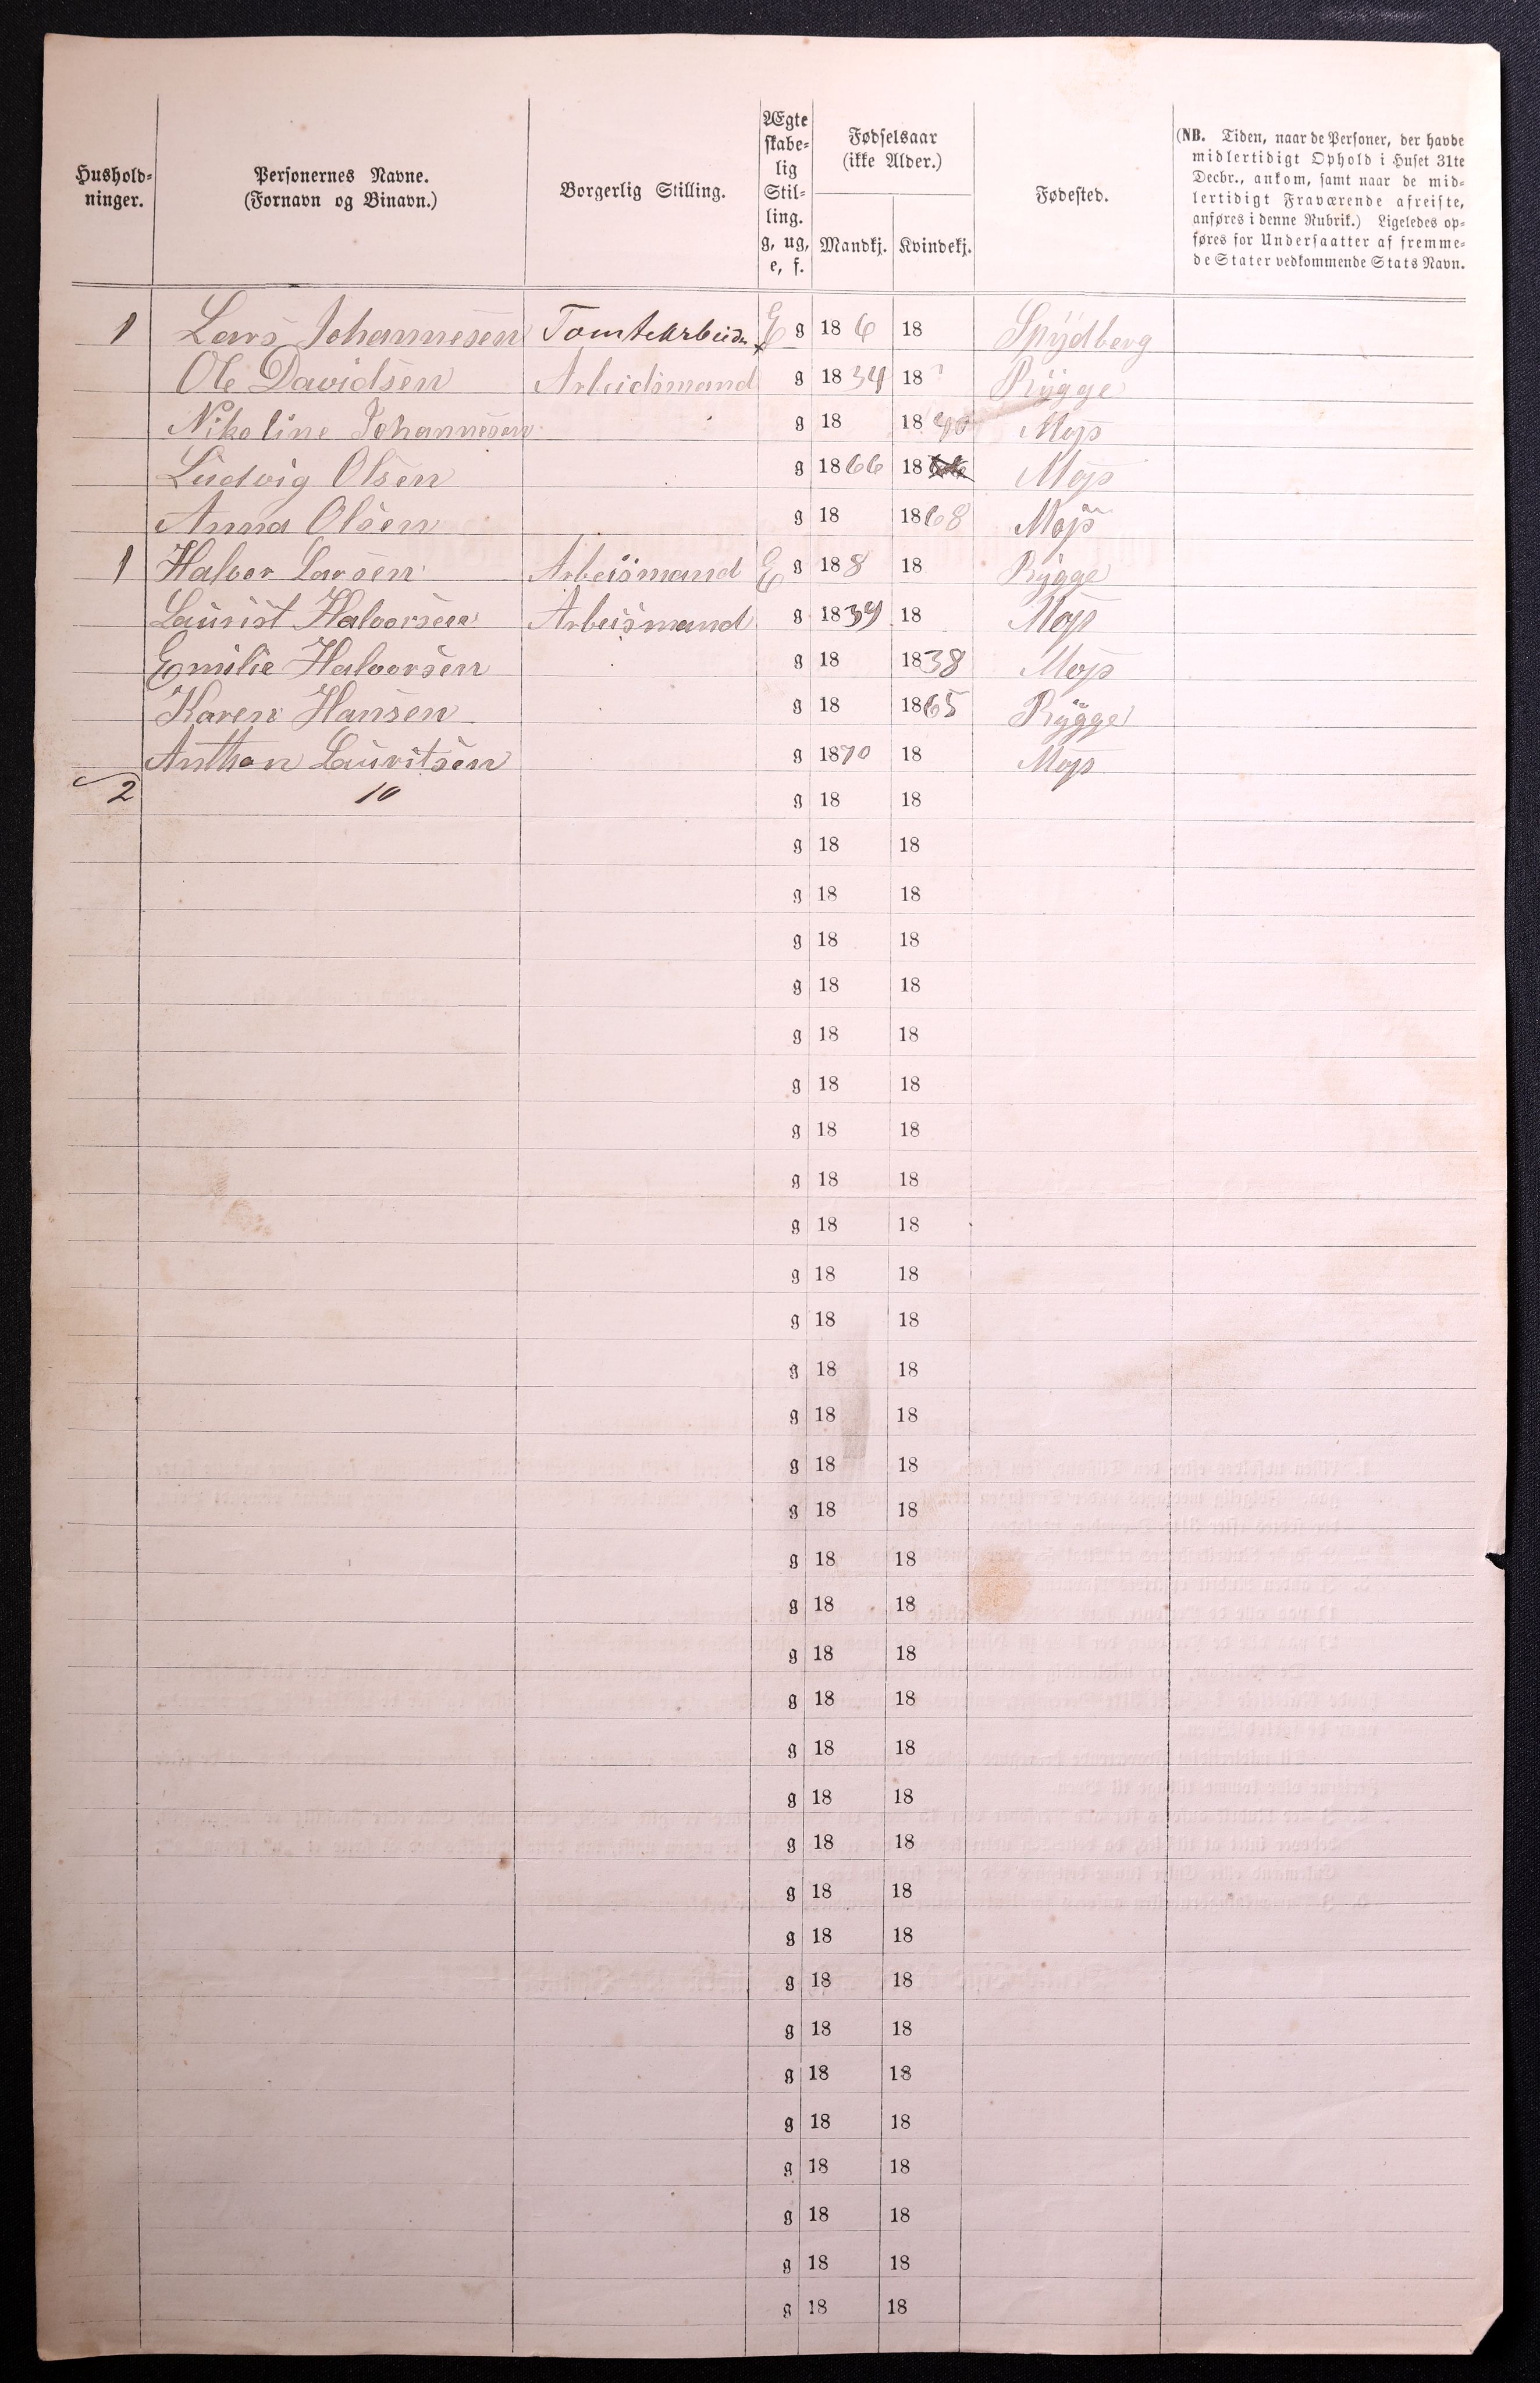 Hushold-
ninger.
Personernes Navne.
(Fornavn og Binavn.)
Borgerlig Stilling.
Ægte
skabe-
lig
Stil-
ling.
g, ug,
e, f.
Fødselsaar
(ikke Alder.)
Mandkj. Kvindekj.
Fødested.
(NB. Tiden, naar de Personer, der havde
midlertidigt Ophold i Huset 31te
Decbr., ankom, samt naar de mid-
lertidigt Fraværende afreiste,
anføres i denne Rubrik.) Ligeledes op-
føres for Undersaatter af fremme-
de Stater vedkommende Stats Navn.
1 Lars Johannesen Tomtearbeider E g 18 6 18 Spydberg
Ole Davidsen Arbeidsmand g 1834 18 Rygge
Nikoline Johannesen g 18 1840 Moss
Ludvig Olsen g 1866 18 Moss
Anna Olsen g 18 1868 Moss
1 Halvor Larsen Arbeismand E g 18 8 18 Rygge
Laurist Halvorsen Arbeismand g 1834 18 Moss
Emilie Halvorsen g 18 1838 Moss
Karen Hansen g 18 1865 Rygge
Anthon Lauritsen g 1870 18 Moss
2 10 g 18 18
g 18 18
g 18 18
g 18 18
g 18 18
g 18 18
g 18 18
g 18 18
g 18 18
g 18 18
g 18 18
g 18 18
g 18 18
g 18 18
g 18 18
g 18 18
g 18 18
g 18 18
g 18 18
g 18 18
g 18 18
g 18 18
g 18 18
g 18 18
g 18 18
g 18 18
g 18 18
g 18 18
g 18 18
g 18 18
g 18 18
g 18 18
g 18 18